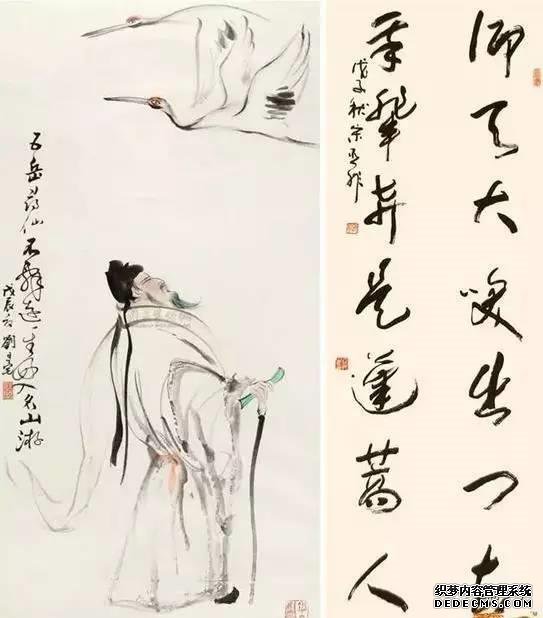 五岳尋仙不辭遠一生好入名山游
戊辰 劉旦宅
仰天大笑出门去
我輩豈是蓬蒿人
戊子秋宗
织梦内容管理系统
DEDECMS.COM